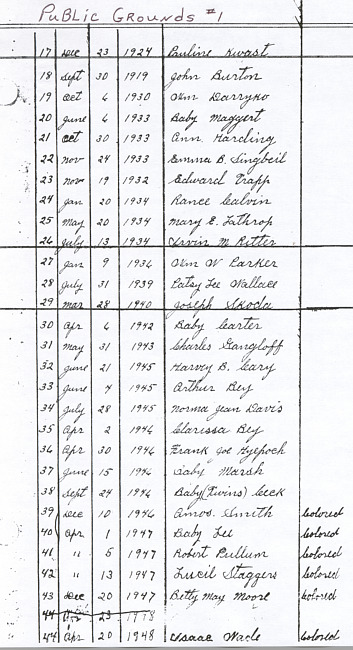 Public Grounds #1
17 Dec 23 1924 Pauline Kwast
18 Sept 30 1919 John Burton
19 Oct 6 1930 Wm Darryko
20 June 6 1933 Baby Maggert
21 Oct 30 1933 Ann. Harding
22 Nov 24 1933 Emma B. Singbeil
23 Nov 19 1932 Edward Trapp
24 Jan 20 1934 Rance Calvin
25 May 20 1934 Mary E. Lathrop
26 July 13 1934 Irvin M Ritter
27 Jan 9 1936 Wm W Parker
28 July 31 1939 Patsy Lee Wallace
29 Mar 28 1940 Joseph Skoda
30 Apr 6 1942 Baby Carter
31 May 31 1943 Charles Gangloff
32 June 21 1945 Harvey B. Cary
33 June 4 1945 Arthur Bey
34 July 28 1945 Norma Jean Davis
35 Apr 2 1946 Clarissa Bey
36 Apr 30 1946 Frank Joe
37 June 15 1946 Baby Marsh
38 Sept 24 1946 Baby (Twins) Ceck
39 Dec 10 1946 Amos. Smith Colored
40 Apr 1 1947 Baby Lee Colored
41 " 5 1947 Robert Pullum Colored
42 " 13 1947 Luxil Staggers Colored
43 Dec 20 1947 Betty May Moore Colored
44 23
44 Apr 20 1948 Isaac Wade